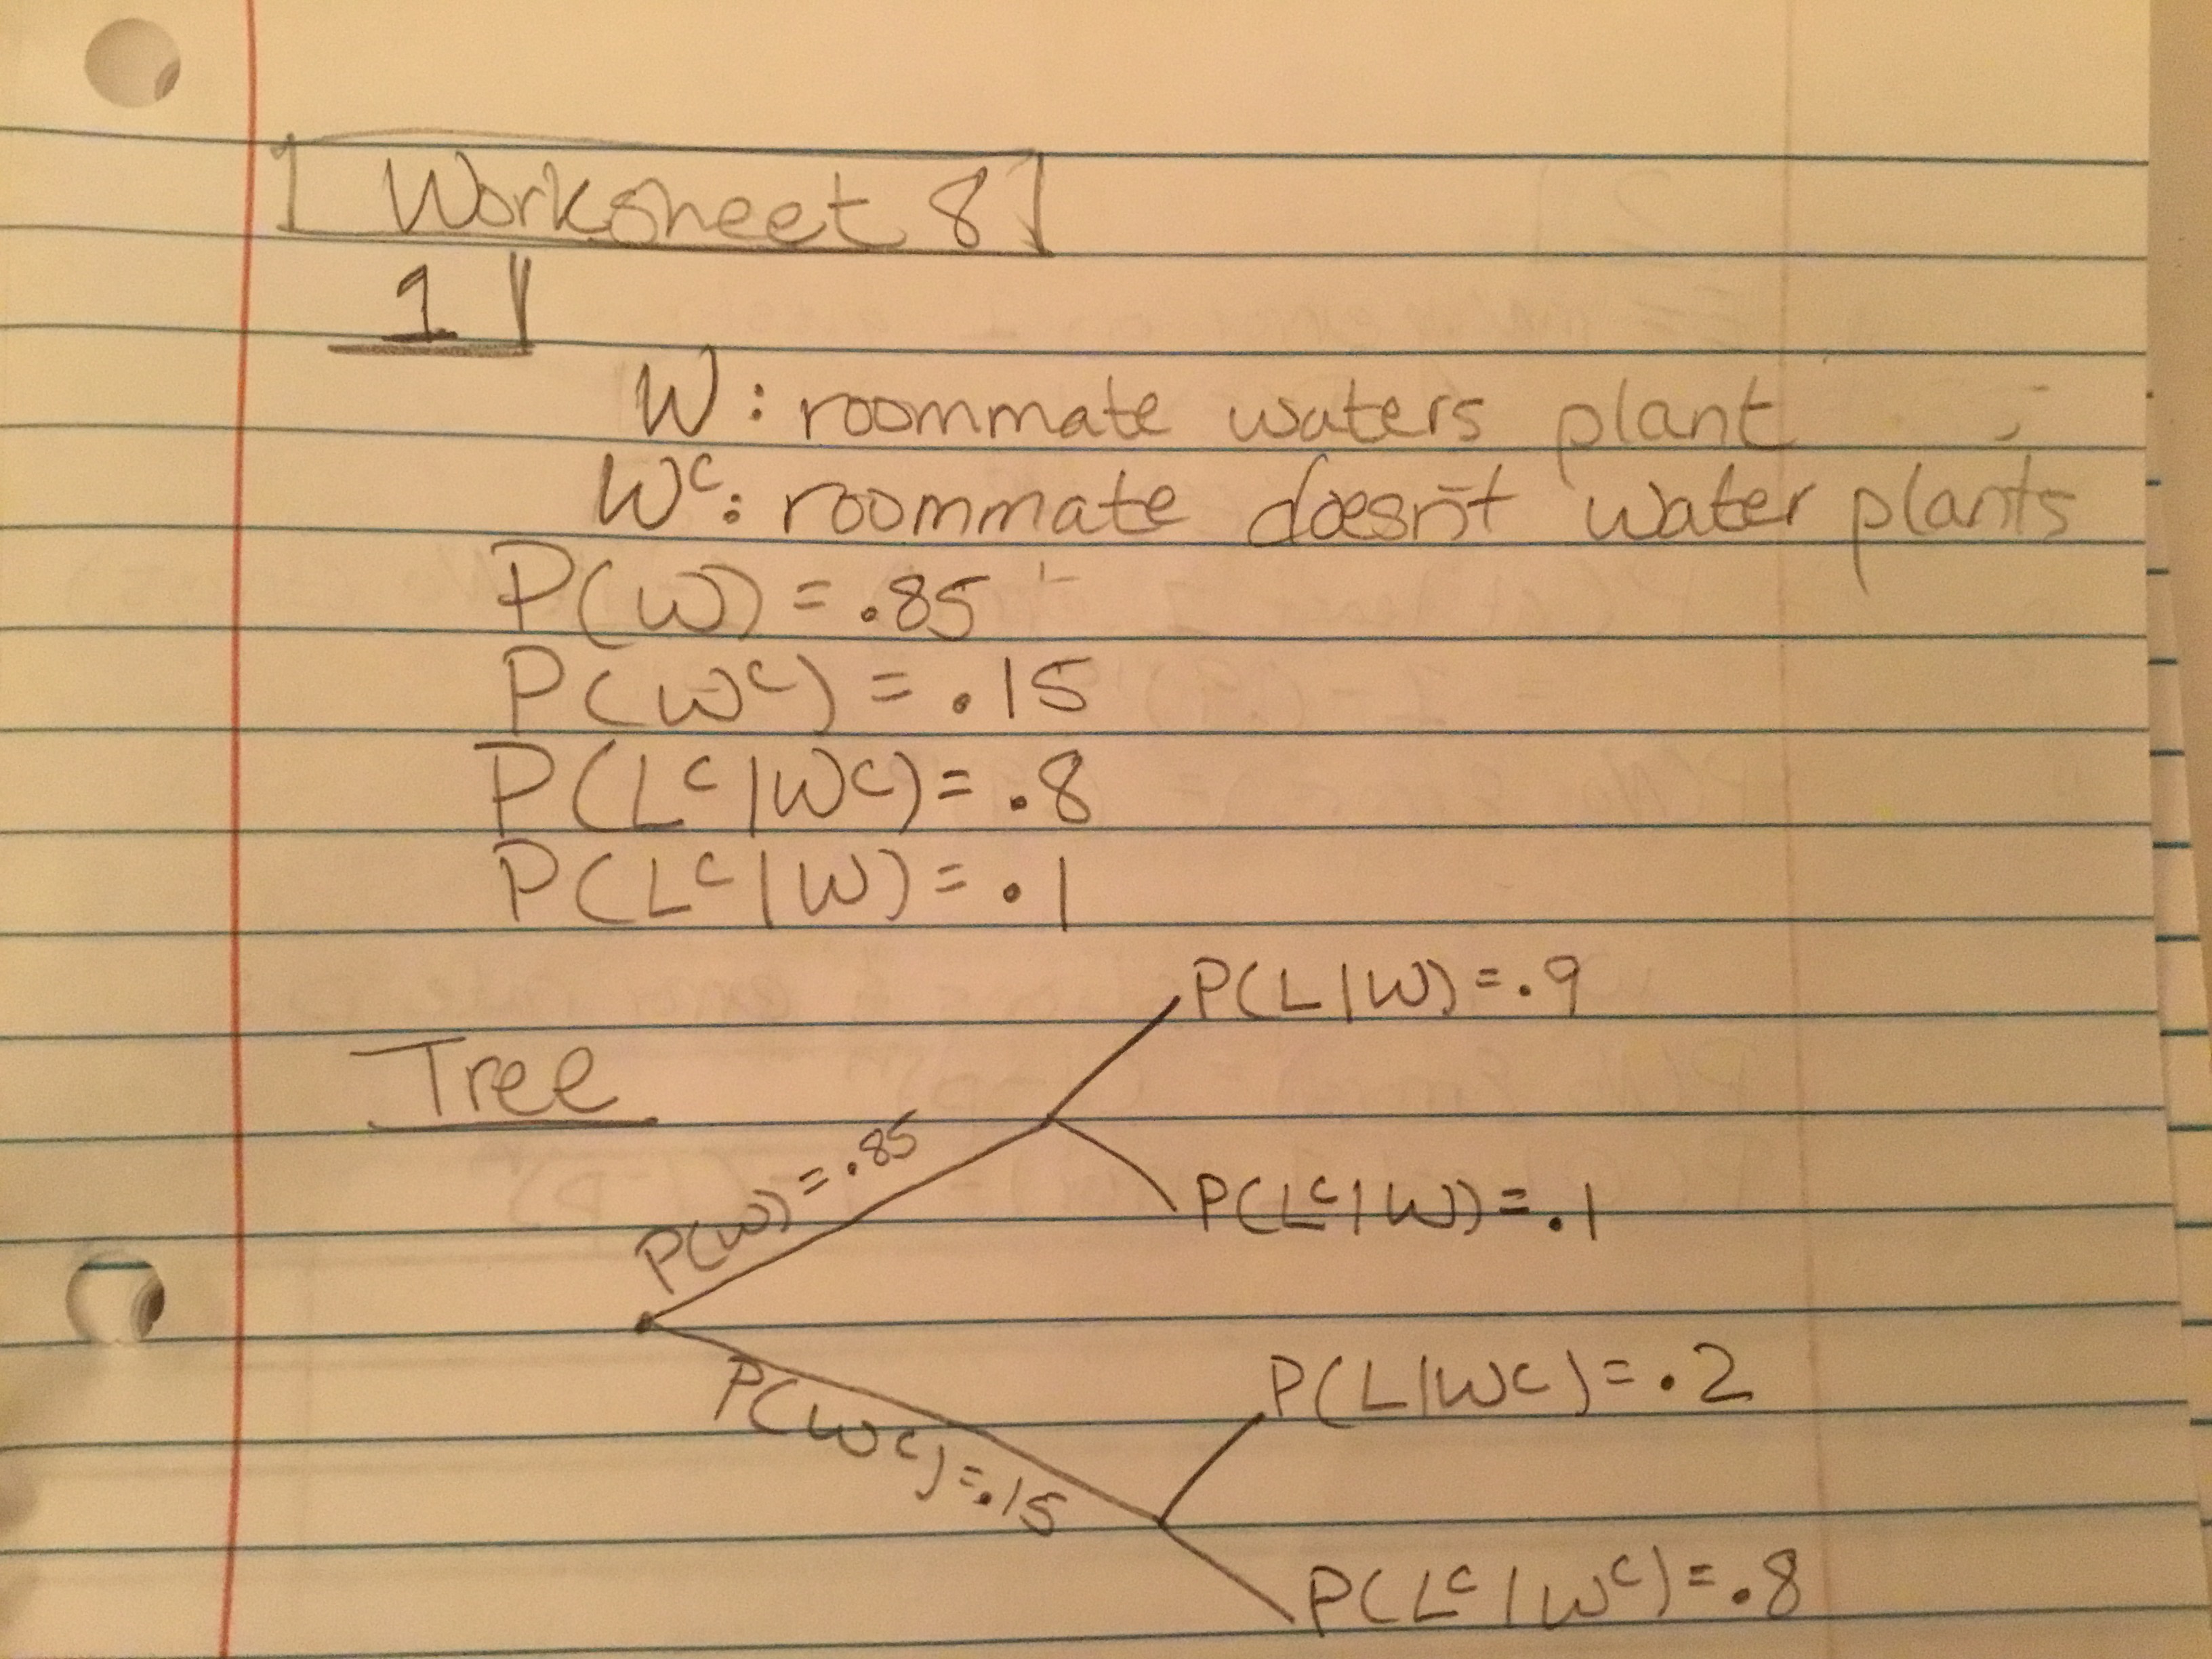 Worksheet 8
1
W: roommate waters plant
Wᶜ: roommate doesn't water plants
P(W) = .85
P(Wᶜ) = .15
P(Lᶜ|Wᶜ) = .8
P(Lᶜ|W) = .1
P(L|W) = .9
Tree
P(W) = .85
P(Lᶜ|W) = .1
P(L|Wᶜ) = .2
P(Wᶜ) = .15
P(Lᶜ|Wᶜ) = .8